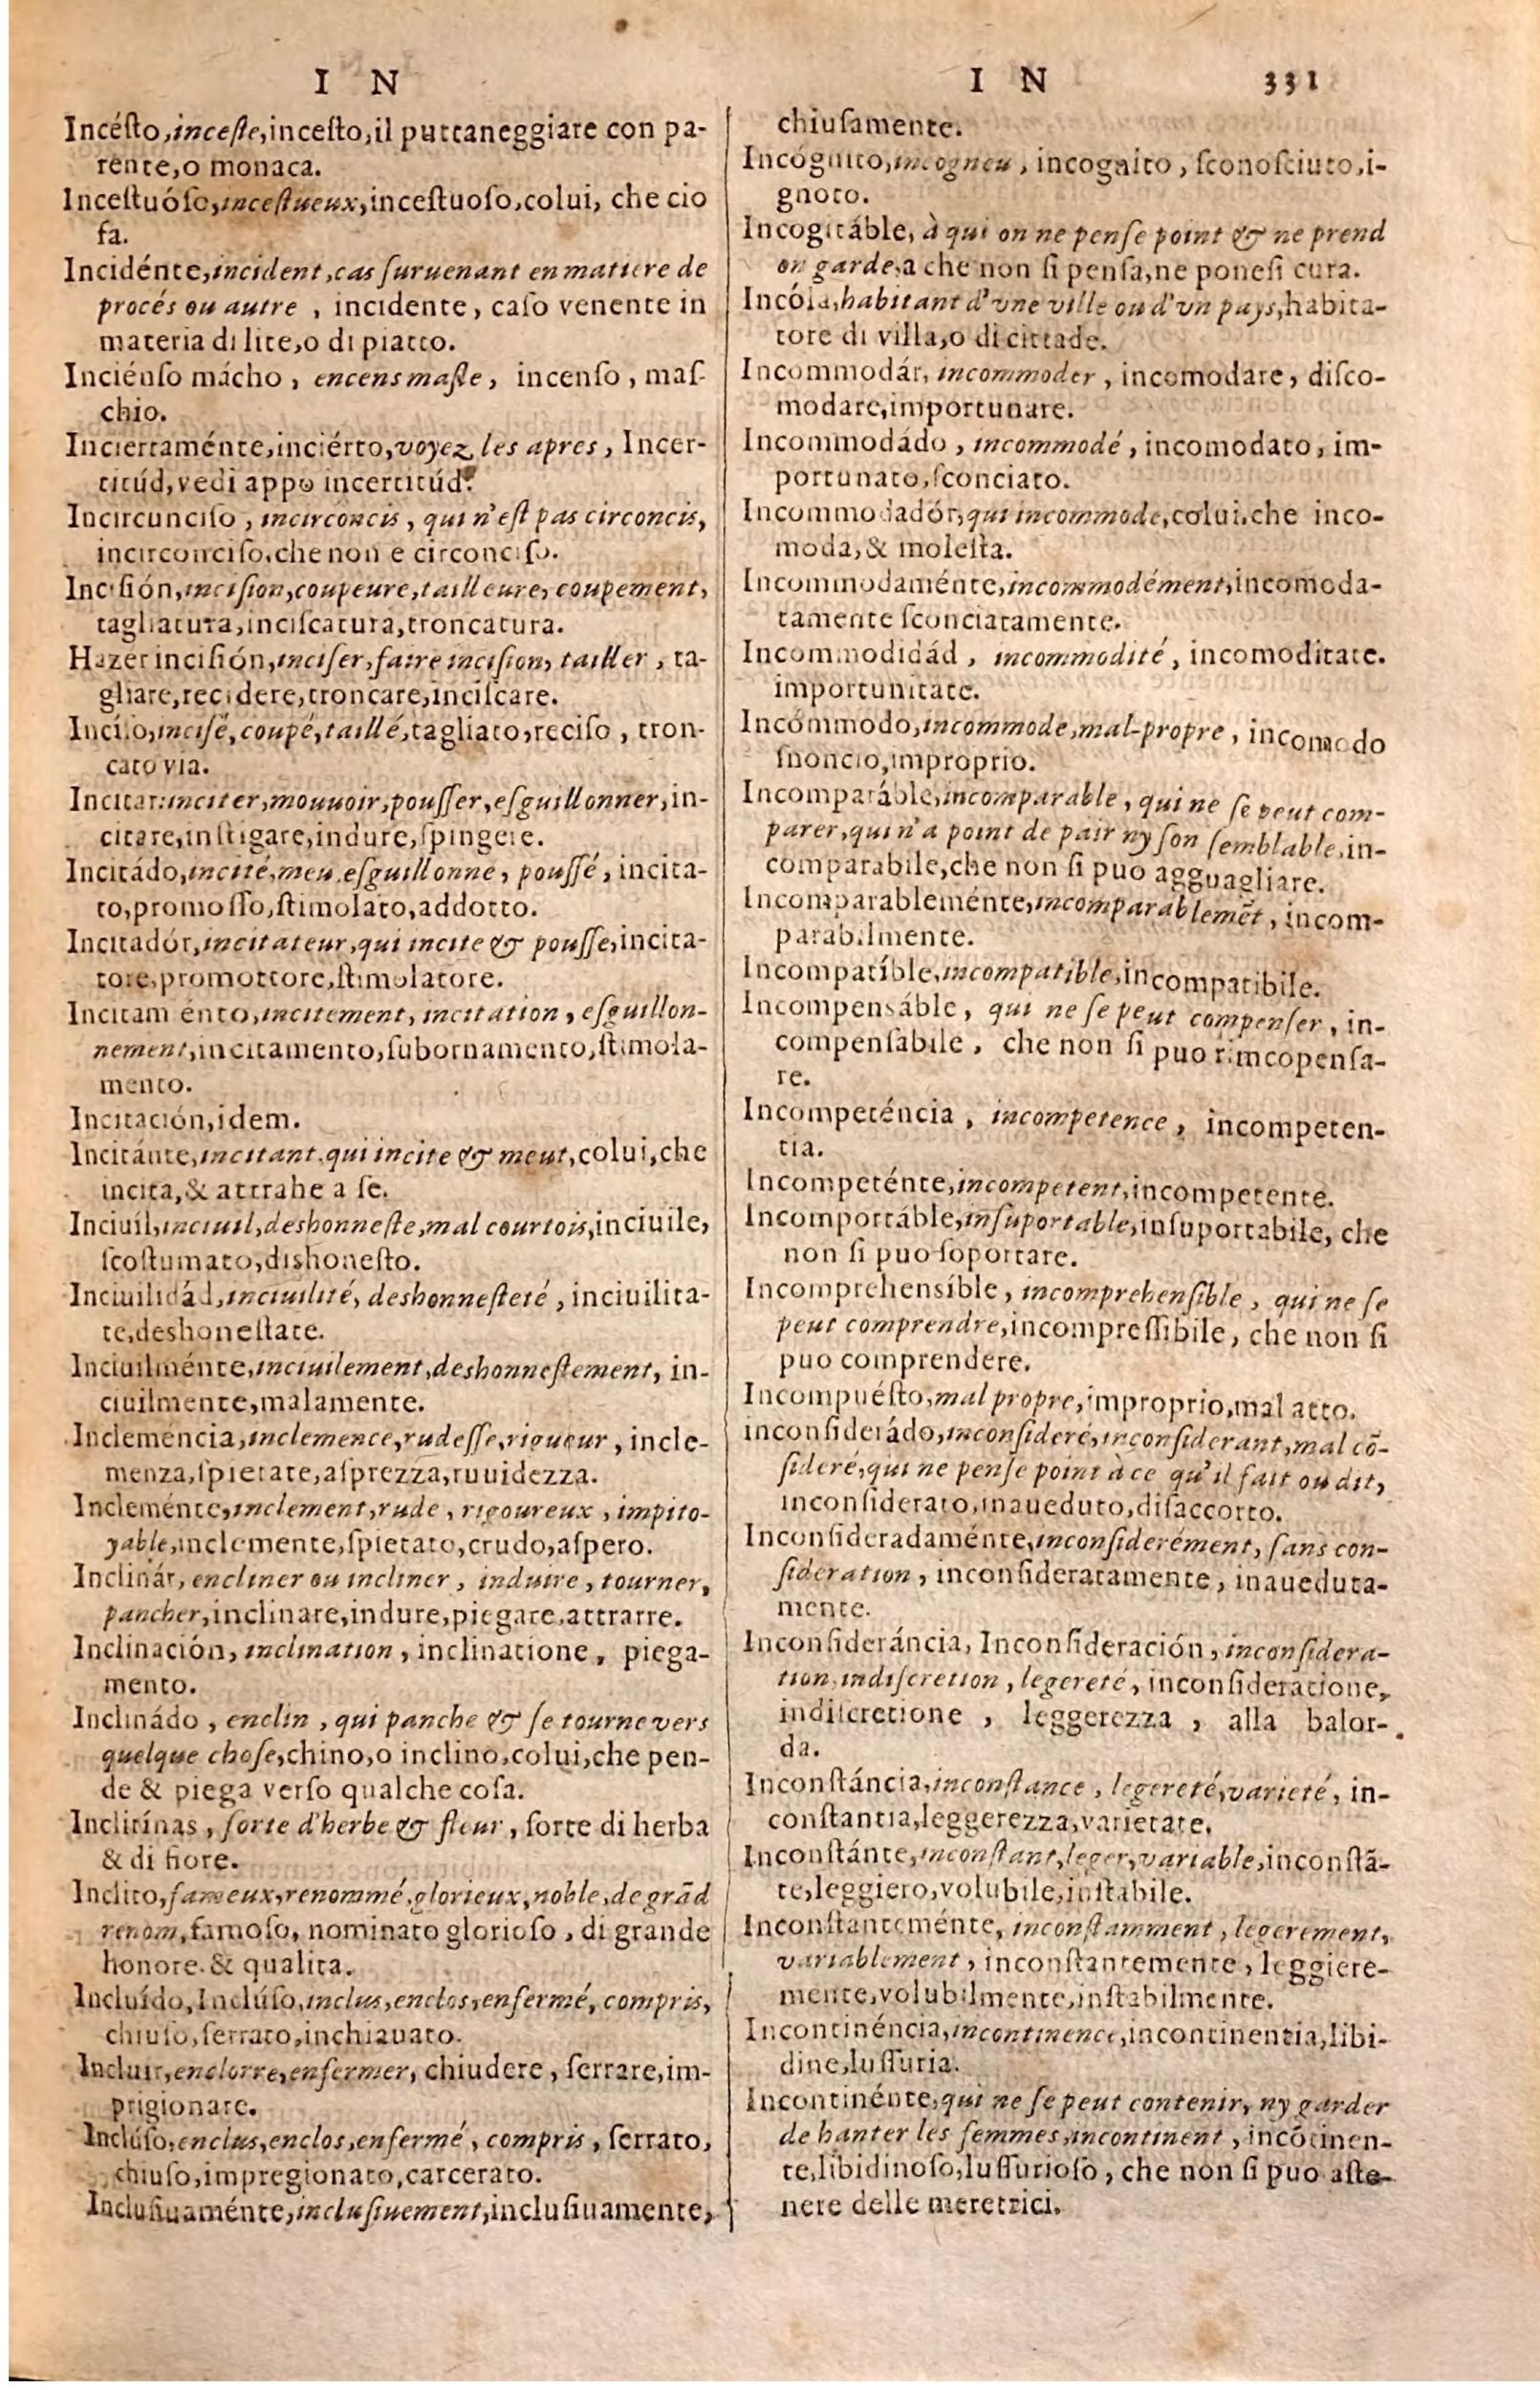 I N
Incésto,inceste,incesto,il puttaneggiare con pa-
rente,o monaca.
Incestuóso,incestueux,incestuoso,colui, che cio
fa.
Incidénte,incident,cas suruenant en matiere de
procés ou autre , incidente, caso venente in
materia di lite,o di piatto.
Inciénso mácho , encens masle, incenso , mas-
chio.
Inciertaménte,inciérto,voyez les apres, Incer-
titúd,vedi appo incertitúd.
Incircunciso , incirconcis, qui n'est pas circoncis,
incirconciso,che non e circonciso.
Incisión,incision,coupeure,tailleure,coupement,
tagliatura,inciscatura,troncatura.
Hazer incisión,inciser,faire incision, tailler , ta-
gliare,recidere,troncare,inciscare.
Inciso,incisé,coupé,taillé,tagliato,reciso , tron-
cato via.
Incitar:inciter,mouuoir,pousser,esguillonner,in-
citare,instigare,indure,spingere.
Incitádo,incité,meu,esguillonne, poussé, incita-
to,promosso,stimolato,addotto.
Incitadór,incitateur,qui incite & pousse,incita-
tore,promottore,stimolatore.
Incitam énto,incitement, incitation, esguillon-
nement,incitamento,subornamento,stimola-
mento.
Incitación,idem.
Incitánte,incitant,qui incite & meut,colui,che
incita,& attrahe a se.
Inciuíl,inciuil,deshonneste,mal courtois,inciuile,
scostumato,dishonesto.
Inciuilidád,inciuilité, deshonnesteté , inciuilita-
te,deshonestate.
Inciuilménte,inciuilement,deshonnestement, in-
ciuilmente,malamente.
Incleméncia,inclemence,rudesse,rigueur , incle-
menza,spietate,asprezza,ruuidezza.
Incleménte,inclement,rude , rigoureux , impito-
yable,inclemente,spietato,crudo,aspero.
Inclinár, encliner ou incliner, induire , tourner,
pancher,inclinare,indure,piegare,attrarre.
Inclinación, inclination , inclinatione, piega-
mento.
Inclinádo , enclin , qui panche & se tourne vers
quelque chose,chino,o inclino,colui,che pen-
de & piega verso qualche cosa.
Inclitínas , sorte d'herbe & fleur, sorte di herba
& di fiore.
Inclito,fameux,renommé,glorieux,noble,de grãd
renom,famoso, nominato glorioso , di grande
honore.& qualita.
Incluído,Inclúso,inclus,enclos,enfermé,compris,
chiuso,serrato,inchiauato.
Incluir,enclorre,enfermer, chiudere , serrare,im-
prigionare.
Inclúso,enclus,enclos,enfermé , compris, serrato,
chiuso,impregionato,carcerato.
Inclusiuaménte,inclusiuement,inclusiuamente,
I N 331
chiusamente.
Incógnito,incogneu , incognito , sconosciuto,i-
gnoto.
Incogitáble, à qui on ne pense point & ne prend
on garde,a che non si pensa,ne ponesi cura.
Incóla,habitant d'vne ville ou d'vn pays,habita-
tore di villa,o di cittade.
Incommodár, incommoder , incomodare, disco-
modare,importunare.
Incommodádo , incommodé , incomodato, im-
portunato,sconciato.
Incommodadór,qui incommode,colui,che inco-
moda,& molesta.
Incommodaménte,incommodément,incomoda-
tamente sconciatamente.
Incommodidád , incommodité , incomoditate.
importunitate.
Incómmodo,incommode,mal-propre , incomodo
snoncio,improprio.
Incomparáble,incomparable , qui ne se peut com-
parer,qui n'a point de pair ny son semblable,in-
comparabile,che non si puo agguagliare.
Incomparableménte,incomparablemẽt , incom-
parabilmente.
Incompatíble,incompatible,incompatibile.
Incompensáble , qui ne se peut compenser , in-
compensabile , che non si puo rimcopensa-
re.
Incompeténcia , incompetence , incompeten-
tia.
Incompeténte,incompetent,incompetente.
Incomportáble,insuportable,insuportabile, che
non si puo soportare.
Incomprehensíble , incomprehensible , qui ne se
peut comprendre,incompressibile, che non si
puo comprendere.
Incompuésto,mal propre,improprio,mal atto.
inconsiderádo,inconsideré,inconsiderant,mal cõ-
sideré,qui ne pense point à ce qu'il fait ou dit,
inconsiderato,inaueduto,disaccorto.
Inconsideradaménte,inconsiderément, sans con-
sideration , inconsideratamente , inaueduta-
mente.
Inconsiderància, Inconsideración , inconsidera-
tion,indiscretion , legereté, inconsideratione,
indiscretione , leggerezza , alla balor-
da.
Inconstáncia,inconstance , legereté,varieté, in-
constantia,leggerezza,varietate.
Inconstánte,inconstant,leger,variable,inconstã-
te,leggiero,volubile,instabile.
Inconstanteménte, inconstamment , legerement,
variablement , inconstantemente , leggiere-
mente,volubilmente,instabilmente.
Incontinéncia,incontinence,incontinentia,libi-
dine,lussuria.
Incontinénte,qui ne se peut contenir, ny garder
de hanter les femmes,incontinent , incõtinen-
te,libidinoso,lussurioso , che non si puo aste-
nere delle meretrici.